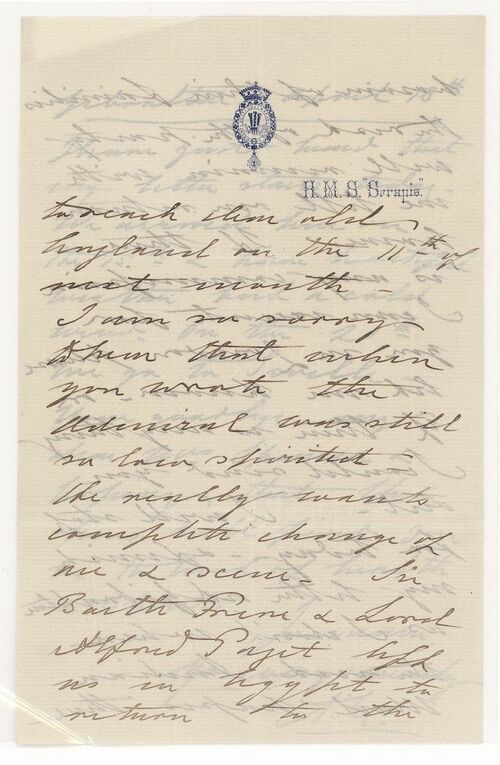 H. M. S. "Serapis".
to reach dear old
England on the 11th of
next month -
I am so sorry
to hear that when
you wrote the
Admiral was still
so low spirited -
He really wants
complete change of
air & scene - Sir
Bartle Frere & Lord
Alfred Paget left
us in Egypt to
return to the